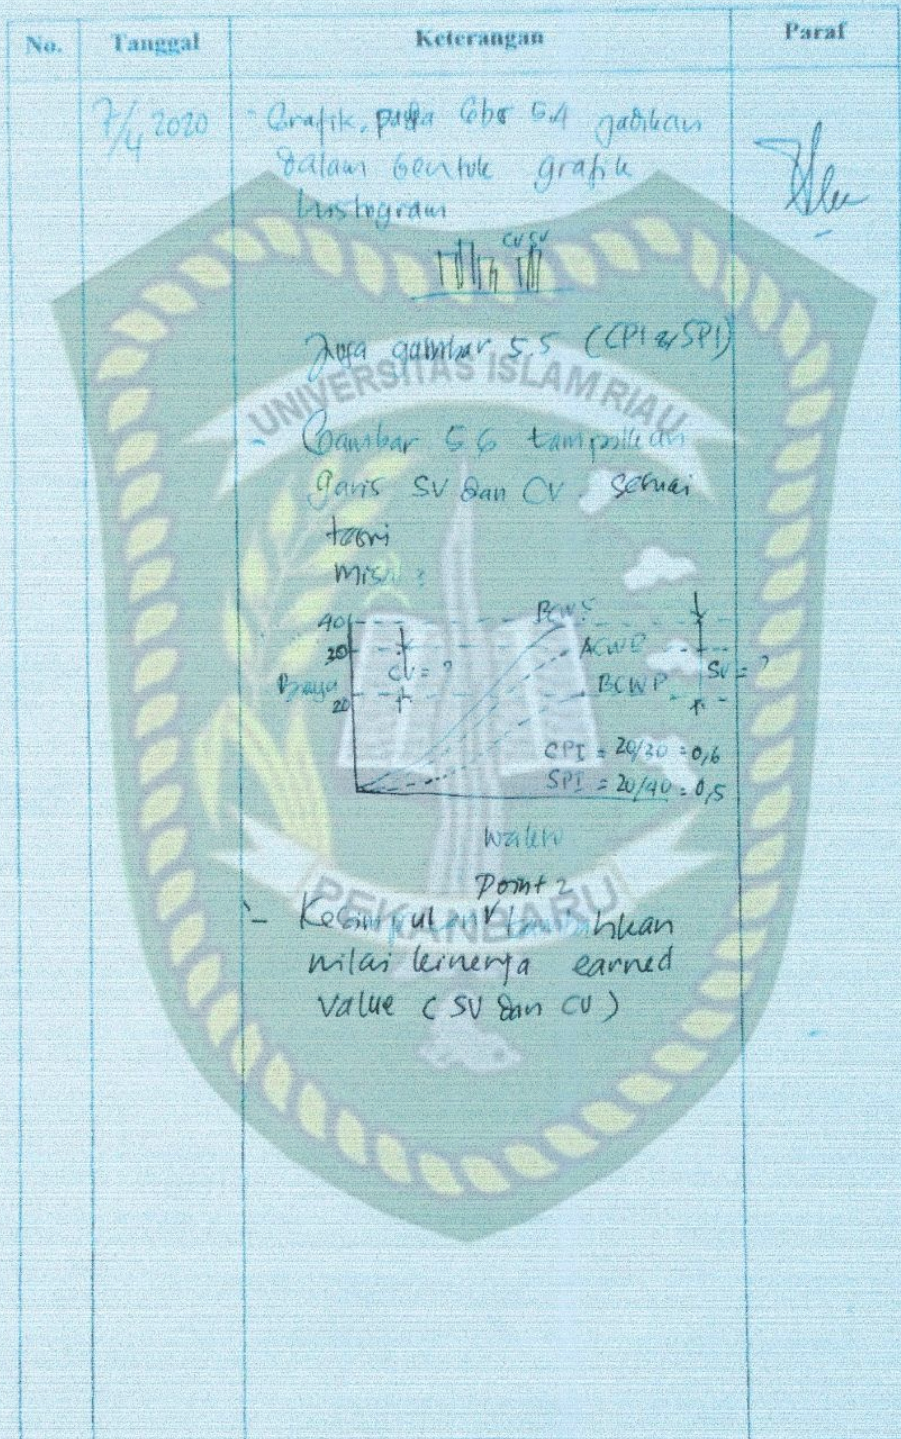 No. Tanggal Keterangan Paraf
7/4 2020 - Grafik pada Gbr 5.4 jadikan
dalam bentuk grafik
histogram
CV SV
Juga gambar 5.5 (CPI & SPI)
- Gambar 5.6 tampilkan
garis SV dan CV sesuai
teori
misal :
UNIVERSITAS ISLAM RIAU
40 BCWS
30 ACWP
CV = ? SV = ?
Biaya BCWP
20
CPI = 20/30 = 0,6
SPI = 20/40 = 0,5
waktu
point 2
- Kesimpulan tambahkan
nilai kinerja earned
value (SV dan CV)
PEKANBARU